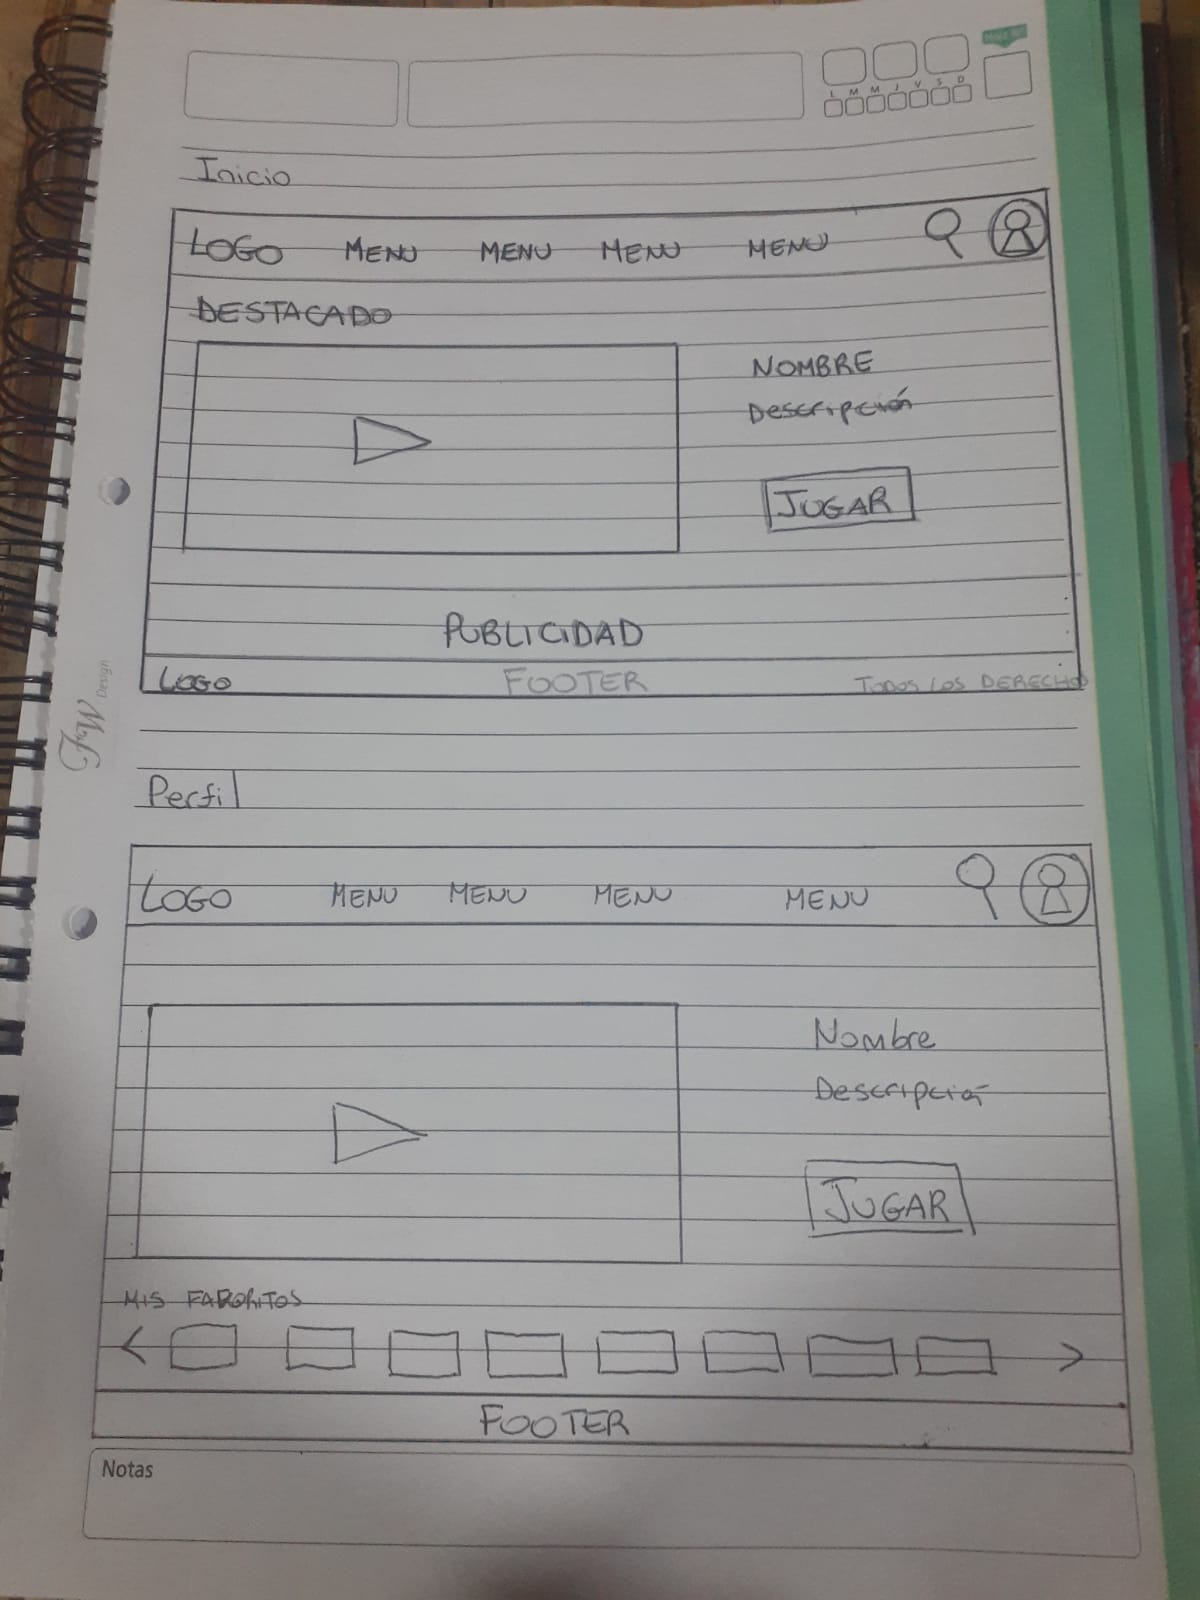 Make it!
L M M J V S D
Inicio
LOGO MENU MENU MENU MENU
DESTACADO
NOMBRE
Descripción
JUGAR
PUBLICIDAD
LOGO FOOTER TODOS LOS DERECHO
FW Design
Perfil
LOGO MENU MENU MENU MENU
Nombre
Descripción
JUGAR
MIS FAVORITOS
< >
FOOTER
Notas